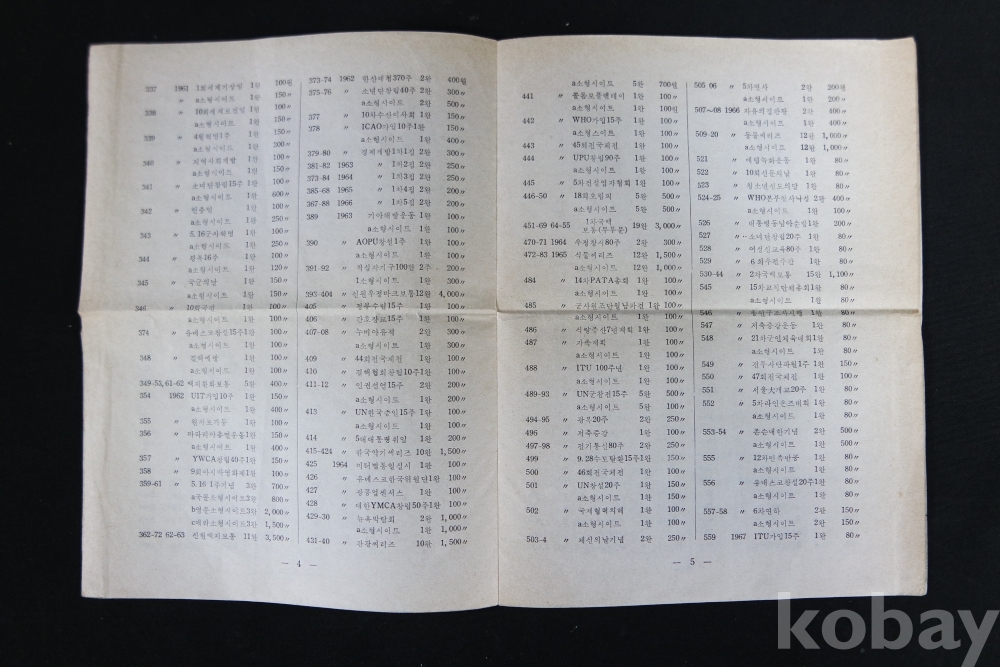 337 1961 1회세계기상일 1완 100원
〃 a소형시이트 1완 150〃
338 〃 1완 100〃
〃 a소형시이트 1완 150〃
339 〃 4월혁명1주 1완 150〃
〃 a소형시이트 1완 300〃
340 〃 지역사회개발 1완 100〃
〃 a소형시이트 1완 150〃
341 〃 소녀단창립15주 1완 100〃
a소형시이트 1완 600〃
342 〃 현충일 1완 100〃
a소형시이트 1완
343 〃 5.16군사혁명 1완 100〃
a소형시이트 1완 250〃
344 〃 광복16주 1완 100〃
a소형시이트 1완 200〃
345 〃 국군의날 1완 100〃
a소형시이트 1완 150〃
346 〃 1완 100〃
a소형시이트 1완 150〃
374 〃 유네스코창설15주1완 100〃
a소형시이트 1완 150〃
348 〃 결핵예방 1완 100〃
a소형시이트 1완 150〃
349-53,61-62 백지환화보통 5완 400〃
354 1962 UIT가입10주 1완 150〃
a소형시이트 1완 400〃
355 〃 원자로가동 1완 100〃
356 〃 마라리아총멸운동1완 150〃
a소형시이트 1완 400〃
357 〃 YWCA창립40주1완 150〃
358 〃 9회아시아영화제1완 100〃
359-61 〃 5.16 1주기념 3완 700〃
a국문소형시이트3완 800〃
b영문소형시이트3완 2,000〃
c에라소형시이트3완 1,500〃
362-72 62-63 신원예지보통 11완 3,500〃
373-74 1962 한산대첩370주 2완 400원
375-76 〃 소년단창립40주 2완 300〃
a소형시이트 2완 500〃
377 〃 10차수산이사회 1완 100〃
378 〃 ICAO가입10주1완 150〃
a소형시이트 1완 400〃
379-80 〃 경제개발1차1집 2완 300〃
381-82 1963 〃 1차2집 2완 250〃
373-84 1964 〃 1차3집 2완 250〃
385-68 1965 〃 1차4집 2완 200〃
367-88 1966 〃 1차5집 2완 200〃
389 1963 기아해방운동 1완 100〃
a소형시이트 1완 200〃
390 〃 AOPU창설1주 1완 100〃
a소형시이트 1완 100〃
391-92 〃 적십자기구100만 2주 200〃
1소형시이트 1완 300〃
393-404 〃 신원우정마크보통12완 4,000〃
405 〃 정부수립15주 1완 100〃
406 〃 간호창교15주 1완 100〃
407-08 〃 누비아유적 2완 300〃
a소형시이트 2완 300〃
409 〃 44회전국체전 1완 100〃
410 〃 결핵협회창립10주1완 100〃
411-12 〃 인권선언15주 2완 200〃
a소형시이트 2완 200〃
413 〃 UN한국승인15주 1완 100〃
a소형시이트 1완 100〃
414 〃 5대대통령취임 1완 200〃
415-424 〃 한국악기씨리즈 10완 1,500〃
425 1964 미터법통일실시 1완 100〃
426 〃 유네스코한국위원단1완 100〃
427 〃 광공업쎈서스 1완 100〃
428 〃 대한YMCA창설50주1완 100〃
429-30 〃 뉴욕박람회 2완 1,000〃
a소형시이트 1완 1,000〃
431-40 〃 관광씨리즈 10완 1,500〃
— 4 —
a소형시이트 5완 700원
441 〃 1완 100〃
a소형시이트 1완 100원
442 〃 WHO가입15주 1완 100〃
a소형스이트 1완 100〃
443 〃 45회전국체전 1완 100〃
444 〃 UPU창설90주 1완 100〃
a소형시이트 1완 100〃
445 〃 5차건설업자협회 1완 100〃
446-50 〃 18회오림픽 5완 500〃
a소형시이트 5완 500〃
451-69 64-55 1차국백보통(투투문) 19완 3,000〃
470-71 1964 우정창시80주 2완 300〃
472-83 1965 식물씨리즈 12완 1,500〃
a소형시이트 12완 1,000〃
484 〃 14차PATA총회 1완 100〃
a소형시이트 1완 100〃
485 〃 1완 100〃
a소형시이트 1완 100〃
486 〃 식량증산7년계획 1완 100〃
487 〃 가족계획 1완 100〃
a소형시이트 1완 100〃
488 〃 ITU 100주년 1완 100〃
a소형시이트 1완 100〃
489-93 〃 UN군참전15주 5완 500〃
a소형시이트 5완 500〃
494-95 〃 광복20주 2완 250〃
496 〃 저축증강 1완 100〃
497-98 〃 전기통신80주 2완 250〃
499 〃 9.28수도탈환15주1완 150〃
500 〃 46회전국체전 1완 100〃
501 〃 UN창설20주 1완 150〃
a소형시이트 1완 150〃
502 〃 국제협력의해 1완 100〃
a소형시이트 1완 100〃
503-4 〃 체신의날기념 2완 250〃
505 06 〃 5차연자 2완 200원
a소형시이트 2완 200〃
507~08 1966 자유의집판완 2완 400〃
a소형시이트 2완 400〃
509-20 〃 동물씨리즈 12완 1,000〃
a소형시이트 12완 1,000〃
521 〃 애림녹화운동 1완 80〃
522 〃 10회신문의날 1완 80〃
523 〃 청소년선도의달 1완 80〃
524-25 〃 WHO본부청사낙성 2완 400〃
a소형시이트 1완 100〃
526 〃 대통령동남아순방 1완 200〃
527 〃 소녀단창립20주 1완 80〃
528 〃 여성신교육80주 1완 80〃
529 〃 6회우편주간 1완 80〃
530-44 〃 2차국백보통 15완 1,100〃
545 〃 15차교직단체총회1완 80〃
a소형시이트 1완 80〃
546 〃 1완 80〃
547 〃 저축증강운동 1완 80〃
548 〃 21차군인체육대회1완 80〃
a소형시이트 1완 80〃
549 〃 전투사단파월1주 1완 150〃
550 〃 47회전국체전 1완 80〃
551 〃 서울大개교20주 1완 80〃
552 〃 5차라인온즈대회 1완 80〃
a소형시이트 1완 80〃
553-54 〃 존슨내한기념 2완 500〃
a소형시이트 2완 500〃
555 〃 12차민족반공 1완 80〃
a소형시이트 1완 80〃
556 〃 유네스코창설20주1완 80〃
a소형시이트 1완 80〃
557-58 〃 6차연하 2완 150〃
a소형시이트 2완 150〃
559 1967 ITU가입15주 1완 80〃
— 5 —
kobay